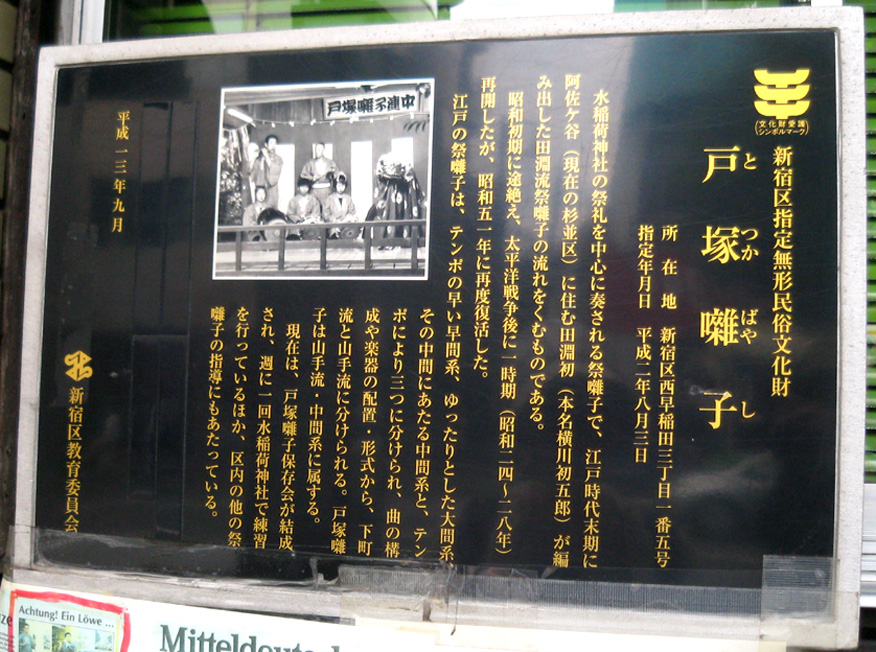 文化財愛護
シンボルマーク
新宿区指定無形民俗文化財
戸塚囃子
とつかばやし
所在地 新宿区西早稲田三丁目一番五号
指定年月日 平成二年八月三日
水稲荷神社の祭礼を中心に奏される祭囃子で、江戸時代末期に
阿佐ケ谷(現在の杉並区)に住む田淵初(本名横川初五郎)が編
み出した田淵流祭囃子の流れをくむものである。
昭和初期に途絶え、太平洋戦争後に一時期(昭和二四〜二八年)
再開したが、昭和五一年に再度復活した。
江戸の祭囃子は、テンポの早い早間系、ゆったりとした大間系、
その中間にあたる中間系と、テン
ポにより三つに分けられ、曲の構
成や楽器の配置・形式から、下町
流と山手流に分けられる。戸塚囃
子は山手流・中間系に属する。
現在は、戸塚囃子保存会が結成
され、週に一回水稲荷神社で練習
を行っているほか、区内の他の祭
囃子の指導にもあたっている。
中連子囃塚戸
平成一三年九月
新宿区教育委員会
Achtung! Ein Löwe ...